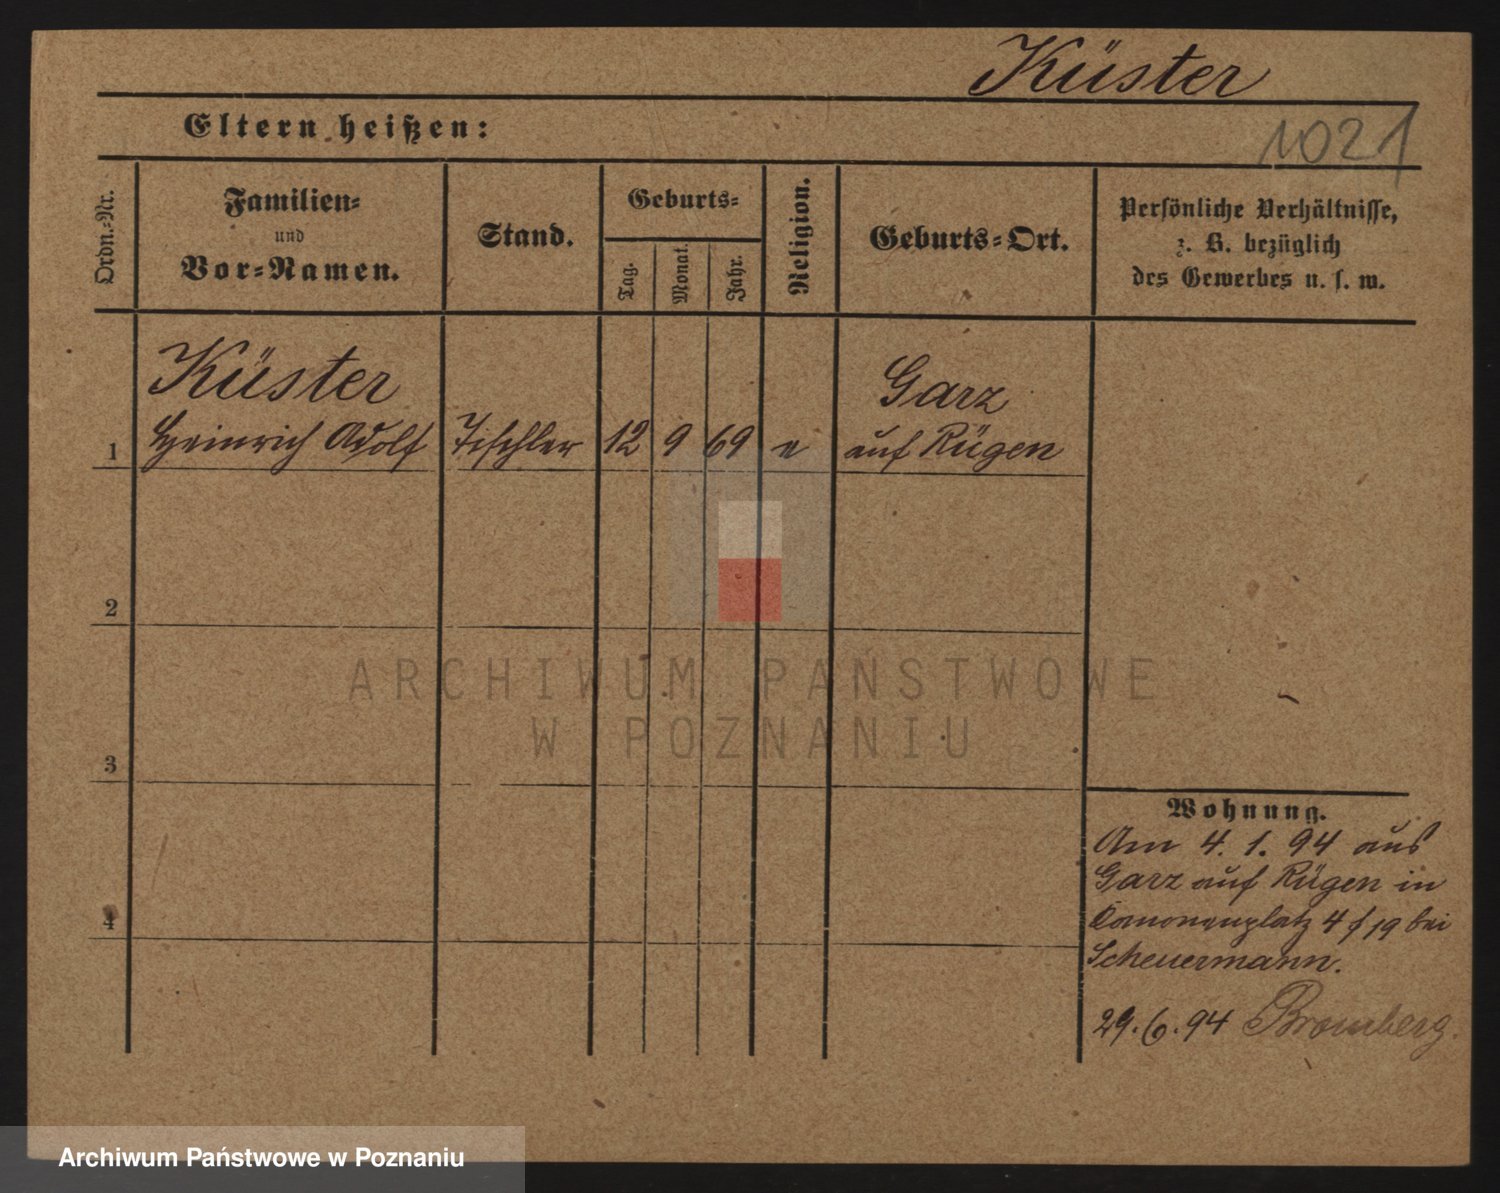 Küster
Eltern heißen:
1021
Ordn.-Nr.
Familien-
und
Vor-Namen.
Stand.
Geburts-
Tag.
Monat.
Jahr.
Religion.
Geburts-Ort.
Persönliche Verhältnisse,
z. B. bezüglich
des Gewerbes u. s. w.
Küster
Garz
1 Heinrich Adolf Tischler 12 9 69 e auf Rügen
2
3
4
Wohnung.
Am 4. 1. 94 aus
Garz auf Rügen in
Canonenplatz 4 f 19 bei
Scheuermann.
29. 6. 94 Bromberg.
ARCHIWUM PAŃSTWOWE
W POZNANIU
Archiwum Państwowe w Poznaniu